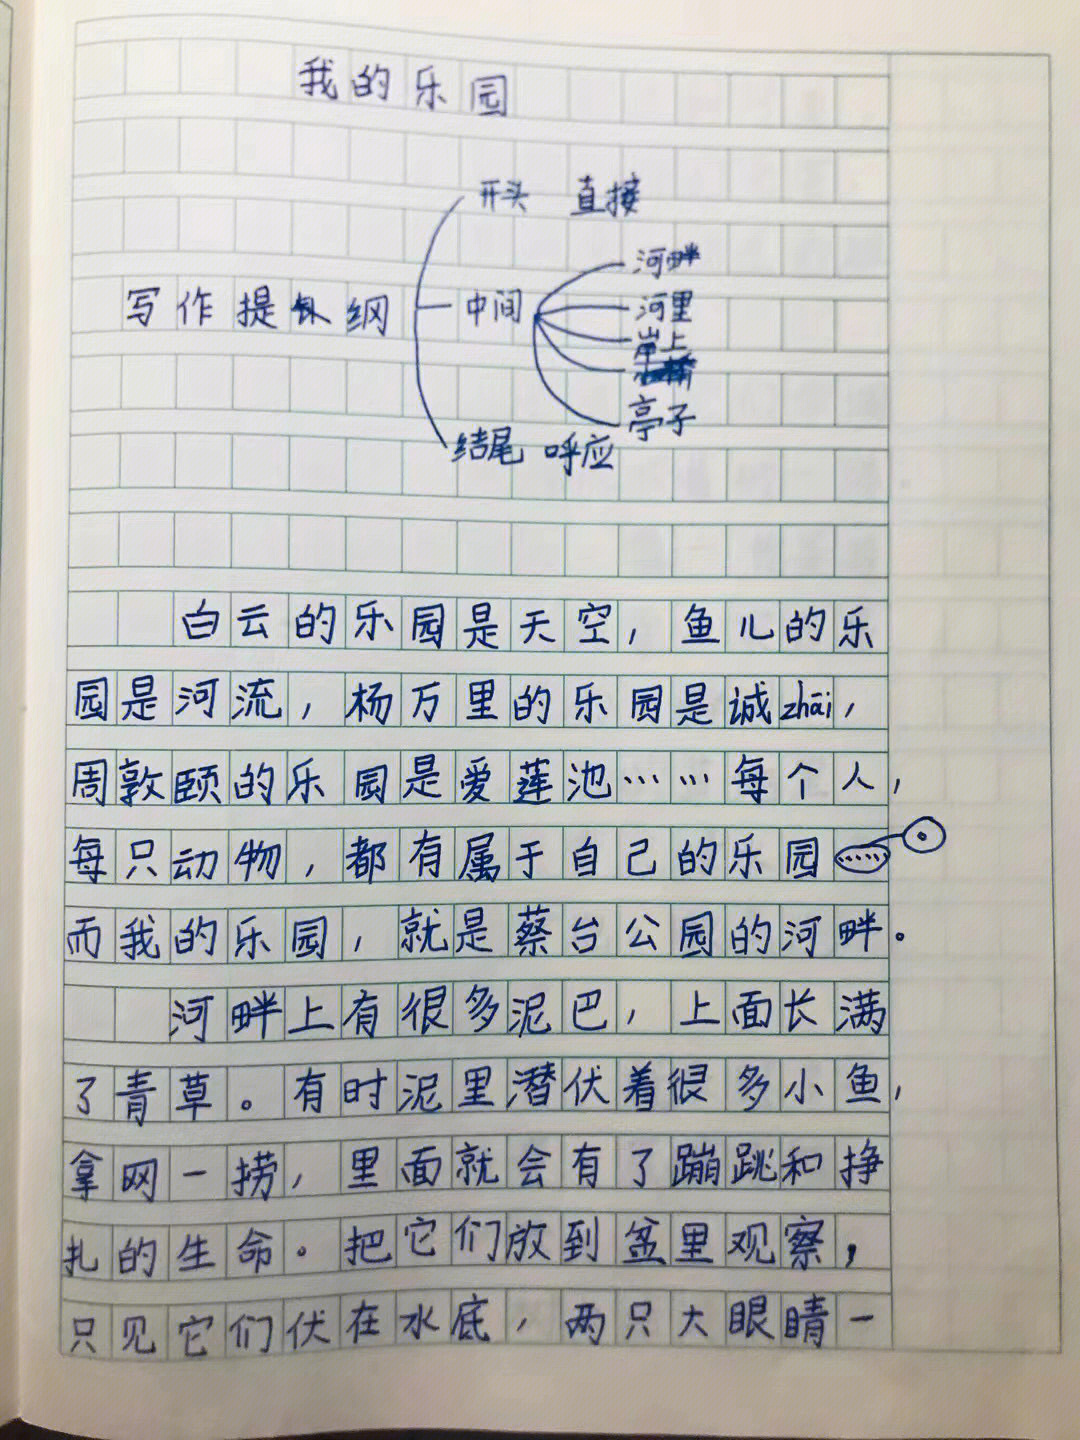 我的乐园
开头 直接
河畔
写作提纲
中间
河里
岸上
亭子
结尾 呼应
白云的乐园是天空，鱼儿的乐
园是河流，杨万里的乐园是诚zhāi，
周敦颐的乐园是爱莲池……每个人，
每只动物，都有属于自己的乐园。
而我的乐园，就是蔡台公园的河畔。
河畔上有很多泥巴，上面长满
了青草。有时泥里潜伏着很多小鱼，
拿网一捞，里面就会有了蹦跳和挣
扎的生命。把它们放到盆里观察，
只见它们伏在水底，两只大眼睛一